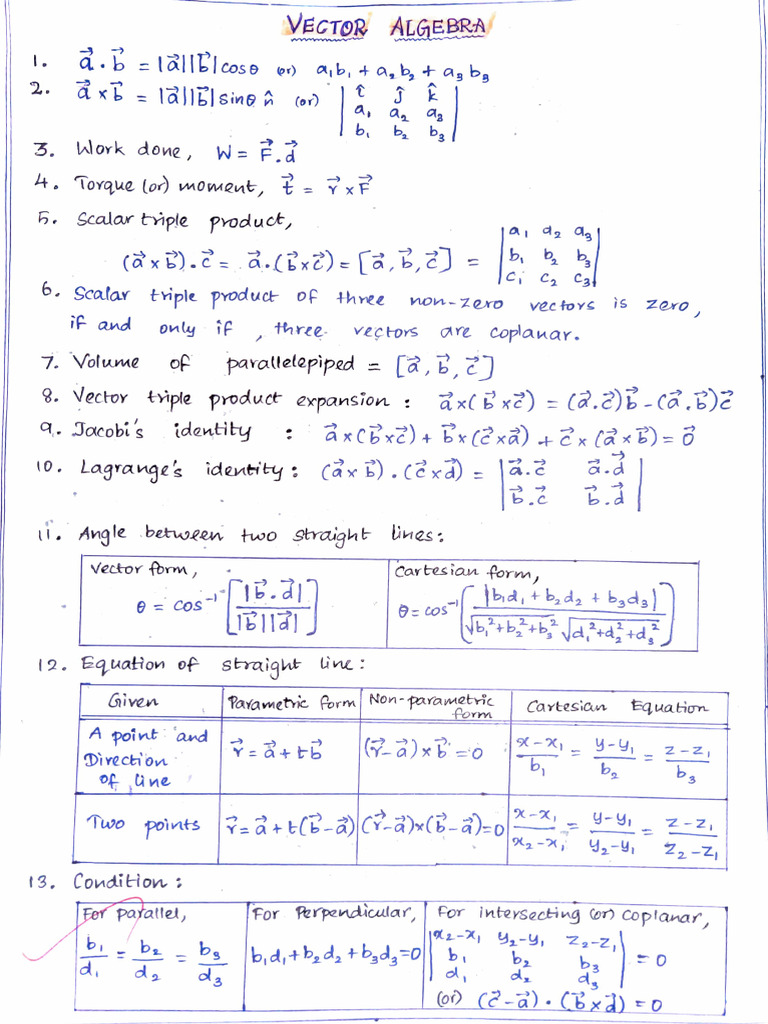 VECTOR ALGEBRA
1. a⃗ . b⃗ = |a⃗||b⃗|cosθ (or) a₁b₁ + a₂b₂ + a₃b₃
2. a⃗ × b⃗ = |a⃗||b⃗|sinθ n̂ (or) | î ĵ k̂ |
| a₁ a₂ a₃ |
| b₁ b₂ b₃ |
3. Work done, W = F⃗ . d⃗
4. Torque (or) moment, t⃗ = r⃗ × F⃗
5. Scalar triple product,
(a⃗ × b⃗) . c⃗ = a⃗ . (b⃗ × c⃗) = [a⃗, b⃗, c⃗] = | a₁ a₂ a₃ |
| b₁ b₂ b₃ |
| c₁ c₂ c₃ |
6. Scalar triple product of three non-zero vectors is zero,
if and only if, three vectors are coplanar.
7. Volume of parallelepiped = [a⃗, b⃗, c⃗]
8. Vector triple product expansion : a⃗ × (b⃗ × c⃗) = (a⃗ . c⃗)b⃗ - (a⃗ . b⃗)c⃗
9. Jacobi's identity : a⃗ × (b⃗ × c⃗) + b⃗ × (c⃗ × a⃗) + c⃗ × (a⃗ × b⃗) = 0⃗
10. Lagrange's identity : (a⃗ × b⃗) . (c⃗ × d⃗) = | a⃗ . c⃗ a⃗ . d⃗ |
| b⃗ . c⃗ b⃗ . d⃗ |
11. Angle between two straight lines :
Vector form,
θ = cos⁻¹ [ |b⃗ . d⃗| / |b⃗||d⃗| ]
Cartesian form,
θ = cos⁻¹ ( |b₁d₁ + b₂d₂ + b₃d₃| / √(b₁² + b₂² + b₃²) √(d₁² + d₂² + d₃²) )
12. Equation of straight line :
Given Parametric form Non-parametric form Cartesian Equation
A point and Direction of line r⃗ = a⃗ + tb⃗ (r⃗ - a⃗) × b⃗ = 0 (x - x₁)/b₁ = (y - y₁)/b₂ = (z - z₁)/b₃
Two points r⃗ = a⃗ + t(b⃗ - a⃗) (r⃗ - a⃗) × (b⃗ - a⃗) = 0 (x - x₁)/(x₂ - x₁) = (y - y₁)/(y₂ - y₁) = (z - z₁)/(z₂ - z₁)
13. Condition :
For parallel,
b₁/d₁ = b₂/d₂ = b₃/d₃
For Perpendicular,
b₁d₁ + b₂d₂ + b₃d₃ = 0
For intersecting (or) coplanar,
| x₂ - x₁ y₂ - y₁ z₂ - z₁ |
| b₁ b₂ b₃ | = 0
| d₁ d₂ d₃ |
(or) (c⃗ - a⃗) . (b⃗ × d⃗) = 0